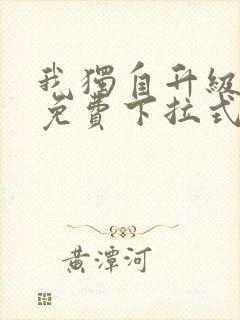 我獨自升級
免費下拉式
黃潭河